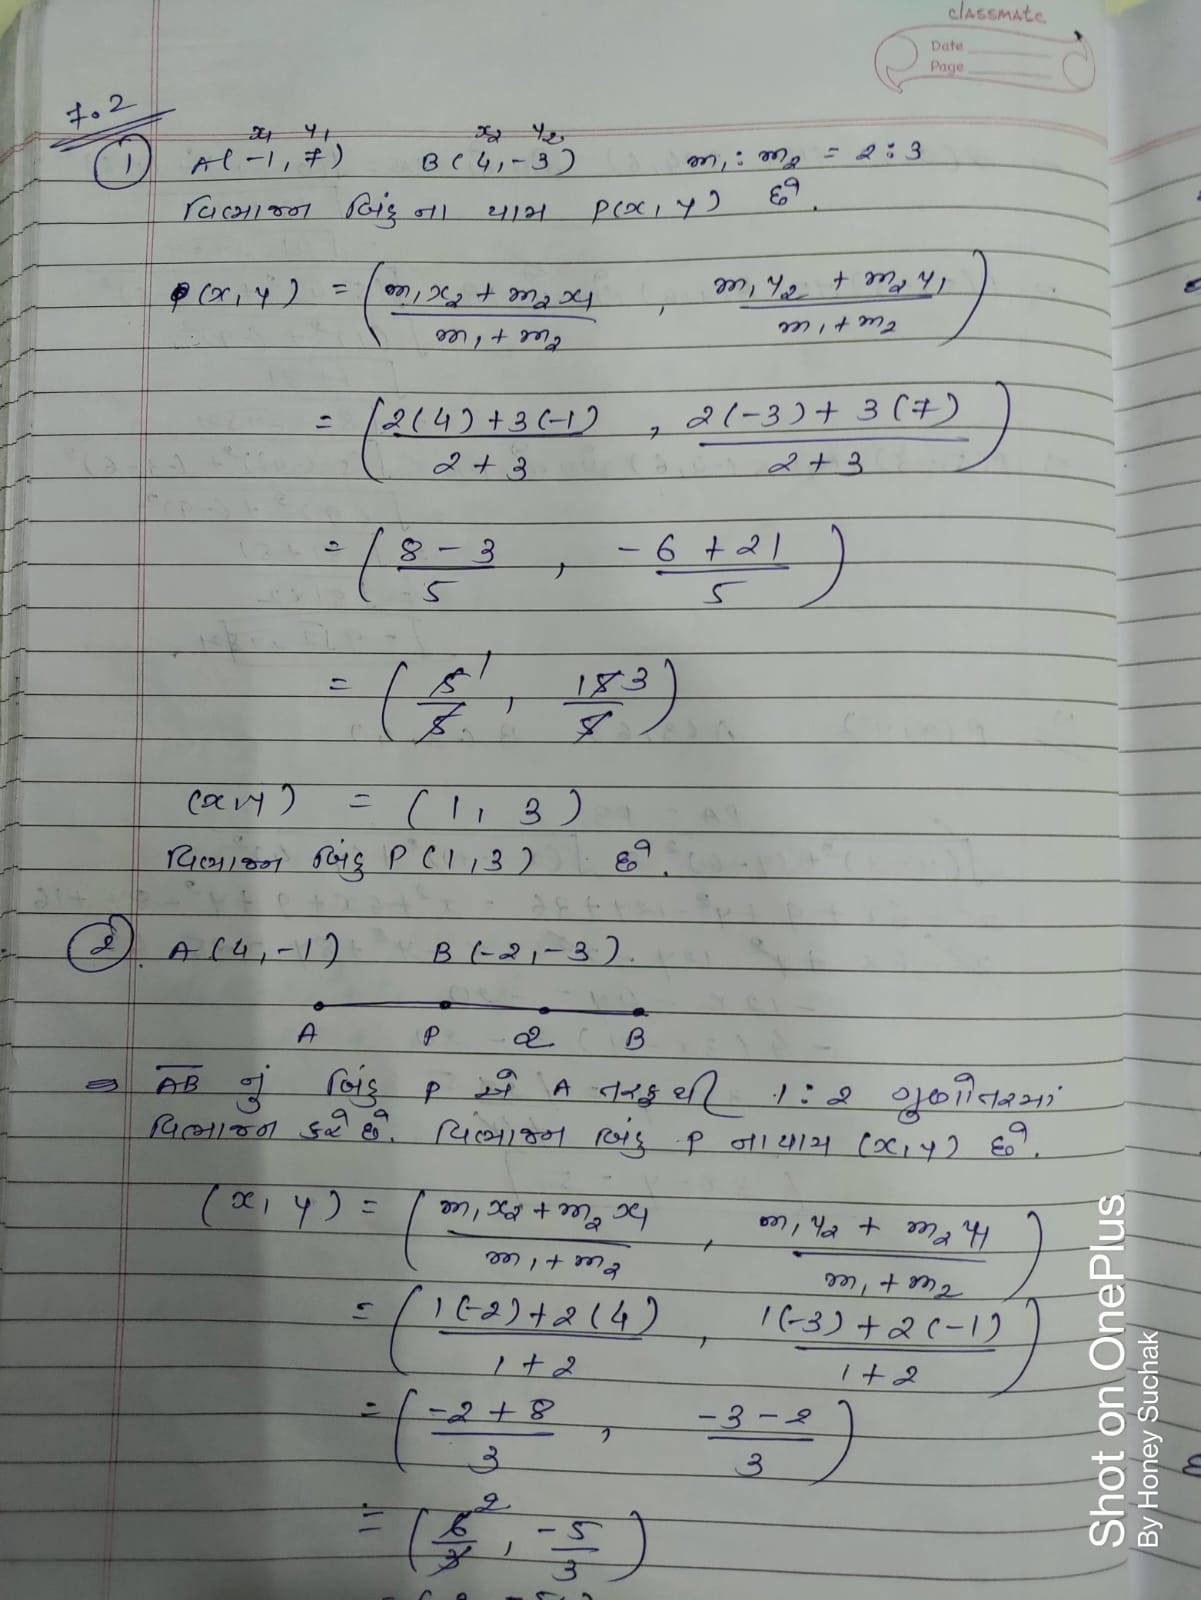 classmate
Date
Page
7.2
x₁ y₁ x₂ y₂
① A(-1, 7) B(4, -3) m₁ : m₂ = 2 : 3
વિભાજન બિંદુ ના યામ P(x, y) છે.
P(x, y) = ( (m₁x₂ + m₂x₁)/(m₁ + m₂) , (m₁y₂ + m₂y₁)/(m₁ + m₂) )
= ( (2(4) + 3(-1))/(2 + 3) , (2(-3) + 3(7))/(2 + 3) )
= ( (8 - 3)/5 , (-6 + 21)/5 )
= ( 5/5 1 , 15/5 3 )
(x, y) = (1, 3)
વિભાજન બિંદુ P(1, 3) છે.
② A(4, -1) B(-2, -3).
A P Q B
⇒ AB નું બિંદુ P એ A તરફથી 1 : 2 ગુણોત્તરમાં
વિભાજન કરે છે. વિભાજન બિંદુ P ના યામ (x, y) છે.
(x, y) = ( (m₁x₂ + m₂x₁)/(m₁ + m₂) , (m₁y₂ + m₂y₁)/(m₁ + m₂) )
= ( (1(-2) + 2(4))/(1 + 2) , (1(-3) + 2(-1))/(1 + 2) )
= ( (-2 + 8)/3 , (-3 - 2)/3 )
= ( 6/3 2 , -5/3 )
Shot on OnePlus
By Honey Suchak